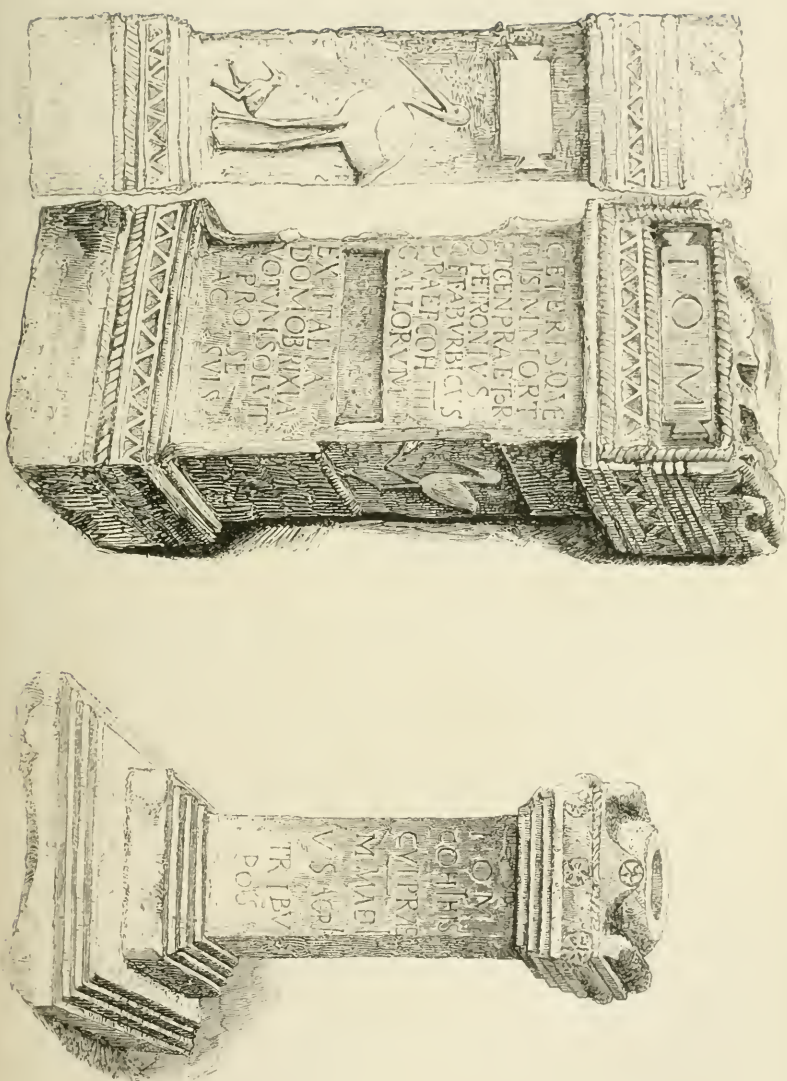 I O M
CETERISQVE
DIIS IMMORT
ET GEN PRAETOR
Q PETRONIVS
Q F FAB VRBICVS
PRAEF COH IIII
GALLORVM
EX ITALIA
DOMO BRIXIA
VOTVM SOLVIT
PRO SE
AC SVIS
I O M
COH I HIS
CVI PRAE
M MAE
VS AGRI
TRIBV
POS